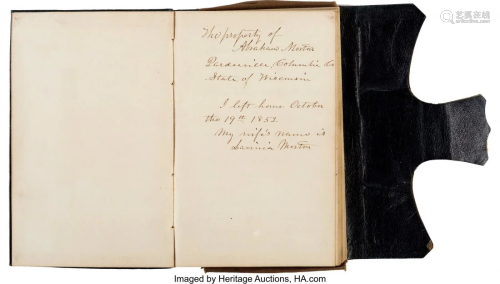 The property of
Abraham Morton
Columbia Co
State of Wisconsin
I left home October
the 19th 1852
My wife's name is
Lavinia Morton
Imaged by Heritage Auctions, HA.com